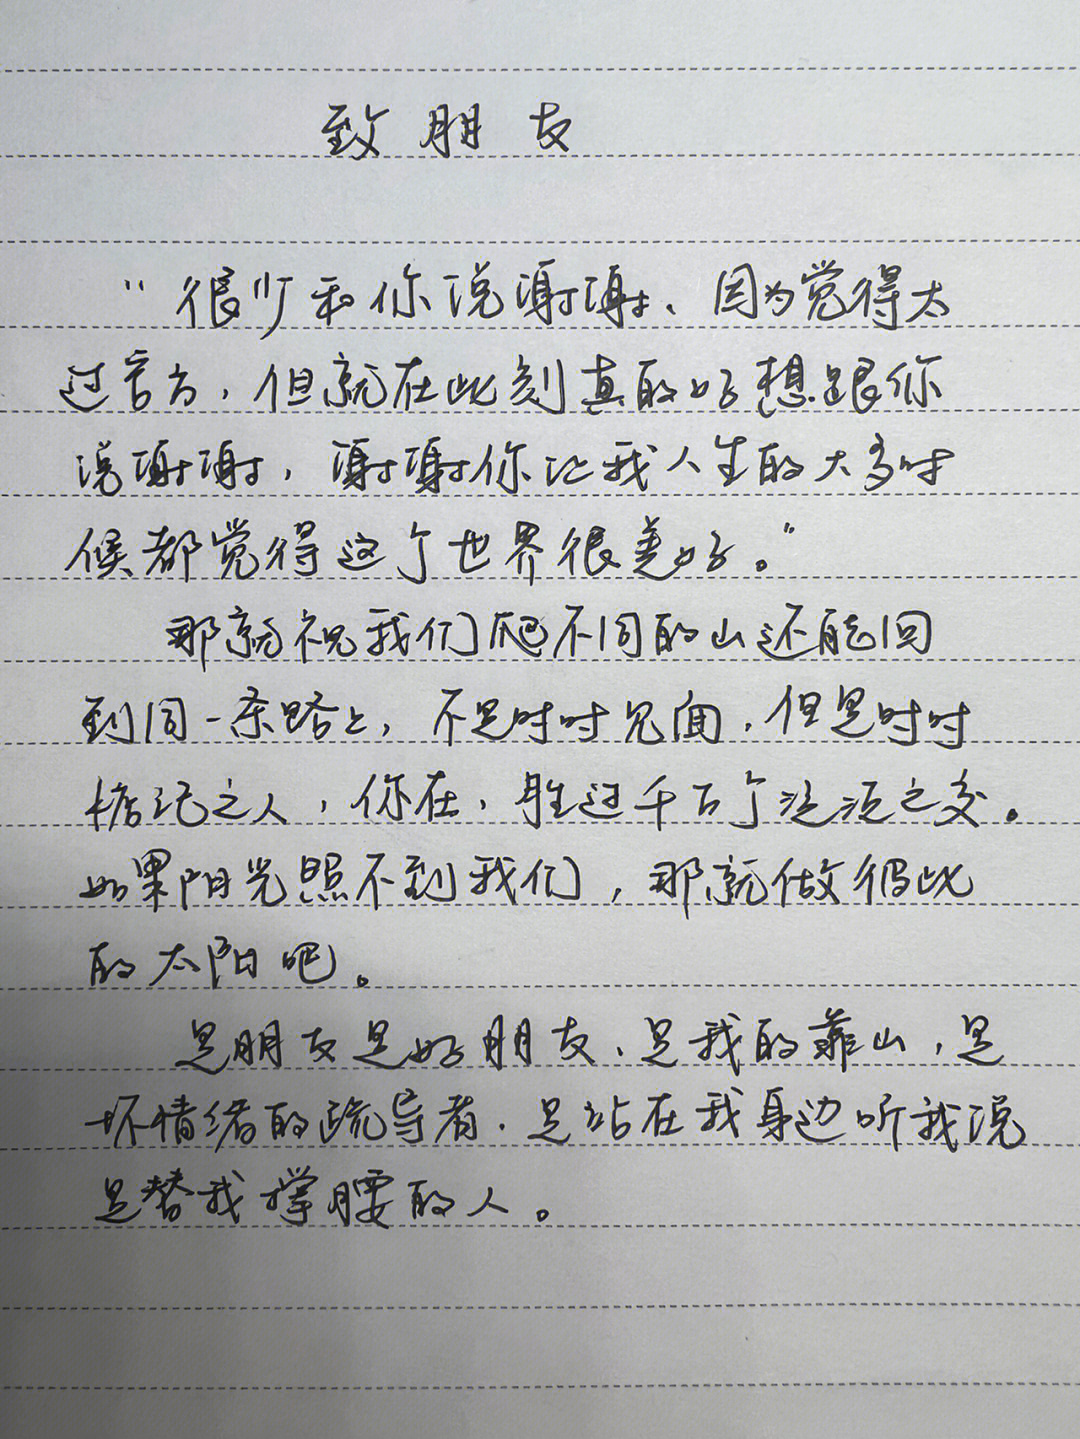 致朋友
“很少和你说谢谢、因为觉得太
过官方，但就在此刻真的好想跟你
说谢谢，谢谢你让我人生的大多时
候都觉得这个世界很美好。”
那就祝我们爬不同的山还能回
到同一条路上，不是时时见面，但是时时
惦记之人，你在，胜过千百个泛泛之交。
如果阳光照不到我们，那就做彼此
的太阳吧。
是朋友是好朋友、是我的靠山，是
坏情绪的疏导者、是站在我身边听我说
是替我撑腰的人。